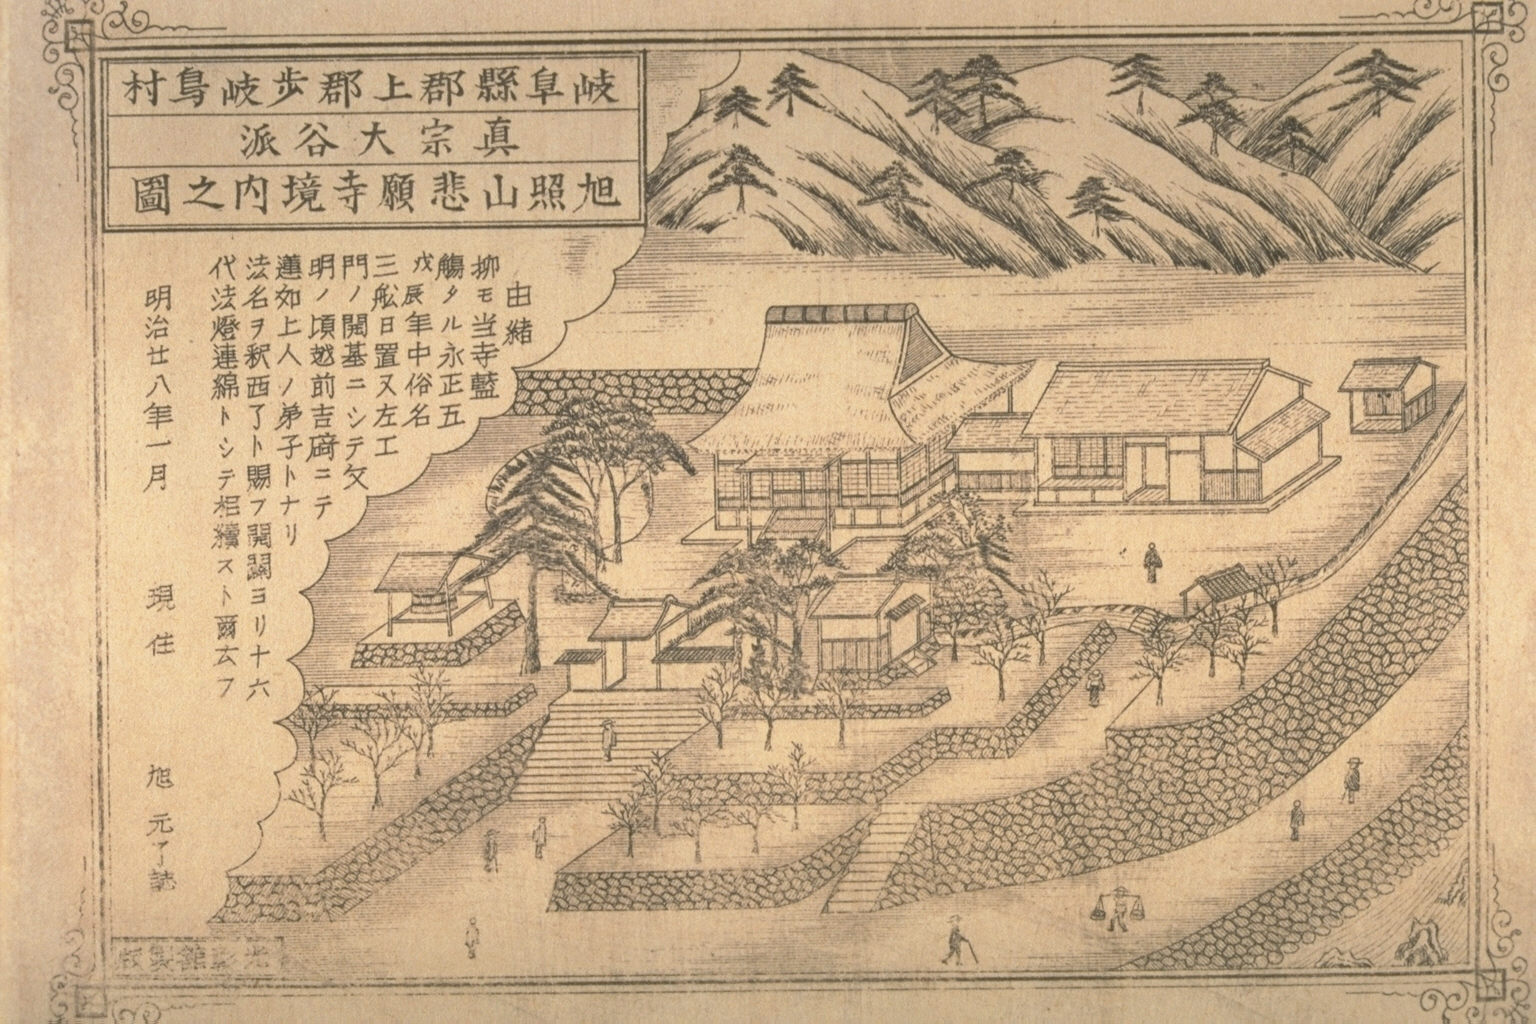 岐阜縣郡上郡步岐島村
真宗大谷派
旭照山悲願寺境内之圖
由緒
抑モ当寺藍
觴タル永正五
戊辰年中俗名
三舩日置又左エ
門ノ開基ニシテ文
明ノ頃越前吉﨑ニテ
蓮如上人ノ弟子トナリ
法名ヲ釈西了ト賜フ開闢ヨリ十六
代法燈連綿トシテ相續スト爾云フ
明治廿八年一月
現住
旭元了誌